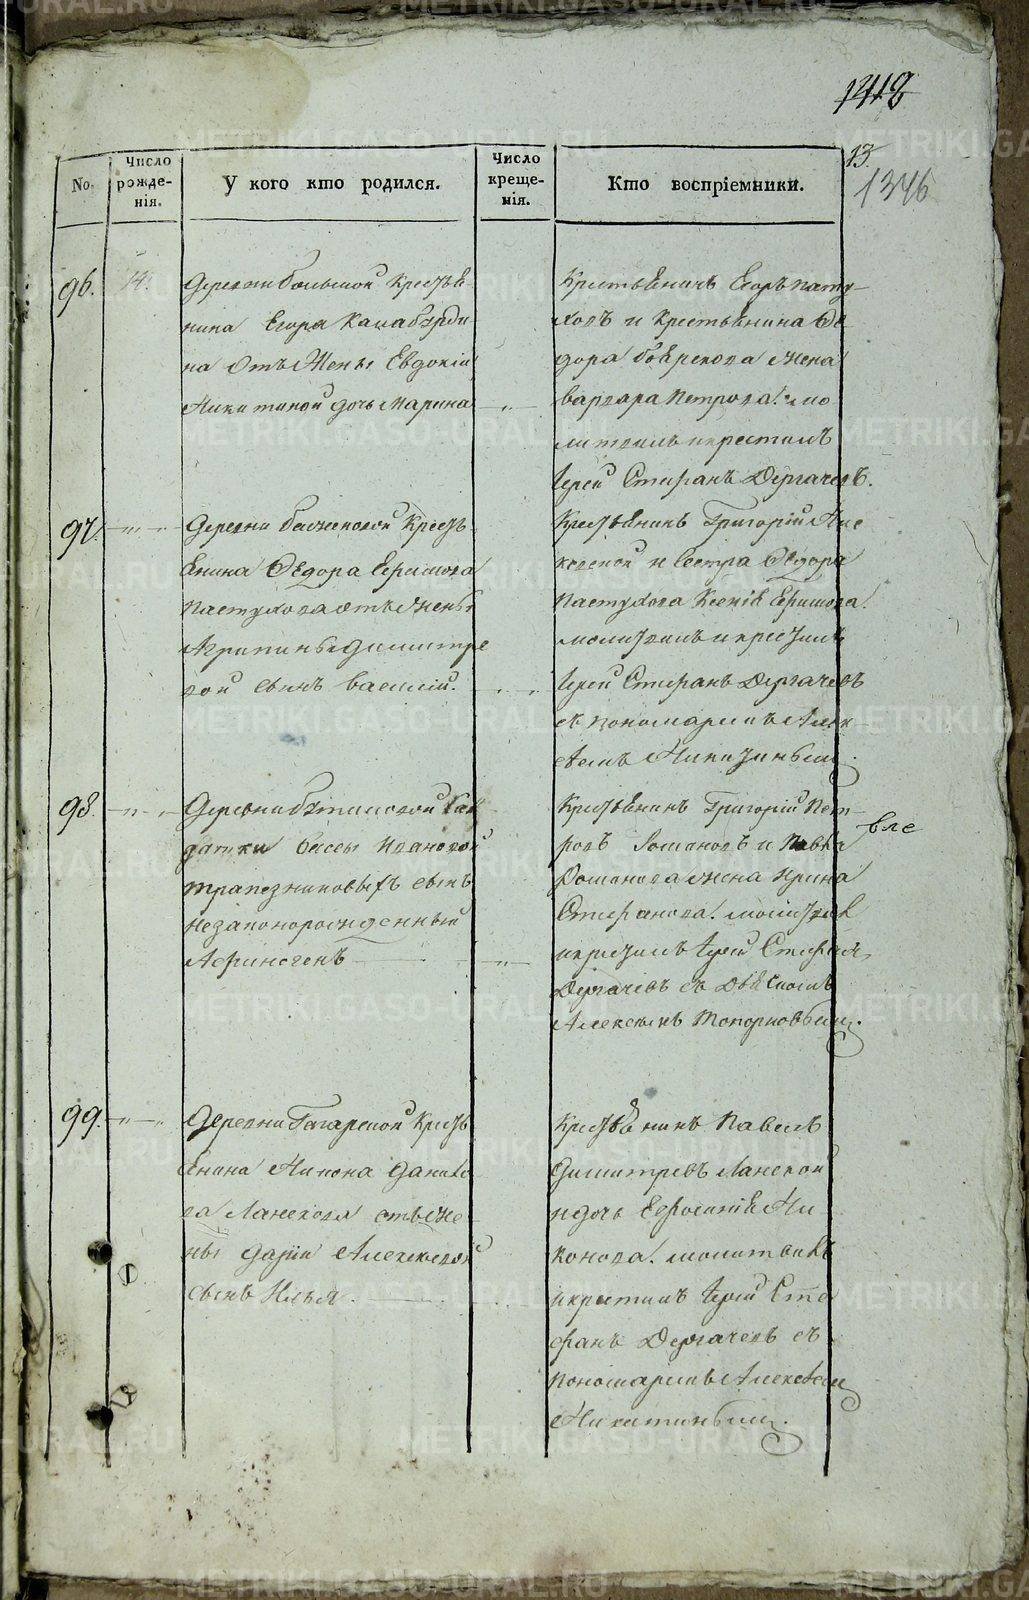 1418
13.
1346
№.
Число рожденія.
У кого кто родился.
Число крещенія.
Кто воспріемники.
96.
14.
деревни большой Крестья
нина Егора
на отъ жены Евдокіи
Никитиной дочь Марина
Крестьянинъ Егоръ пасту
ховъ и крестьянина Ѳе
дора боярскова жена
варвара Петрова. мо
литвилъ и крестилъ
Іерей Стефанъ Дергачевъ.
97.
деревни Кресть
янина Ѳедора Ефимова
Пастухова отъ жены
Агрипины димитре
вой сынъ василій.
Крестьянинъ Григорій
и сестра Ѳедора
Пастухова Ксенія Ефимова.
молитвилъ и крестилъ
Іерей Стефанъ Дергачевъ
съ пономаремъ Алек
сѣемъ Никитинымъ.
98.
Деревни
датки Вассы Ивановой
трапезниковыхъ сынъ
незаконорожденный
Афиногенъ
Крестьянинъ Григорій Пет
ровъ Романовъ и Павла
вле
Романова жена Ирина
Стефанова. молитвил
и крестилъ Іерей Стефанъ
Дергачевъ съ Дьячкомъ
Топорковымъ.
99.
деревни Гагарской Кресть
янина Никона Данило
ва Ланскова отъ же
ны Даріи Алексѣевой
сынъ Илья.
Крестьянинъ Павелъ
Димитревъ Ланской
и дочь Ефросинія Ни
конова. молитвилъ
и крестилъ Іерей Сте
фанъ Дергачевъ съ
пономаремъ Алексѣем
Никитинымъ.
METRIKI.GASO-URAL.RU